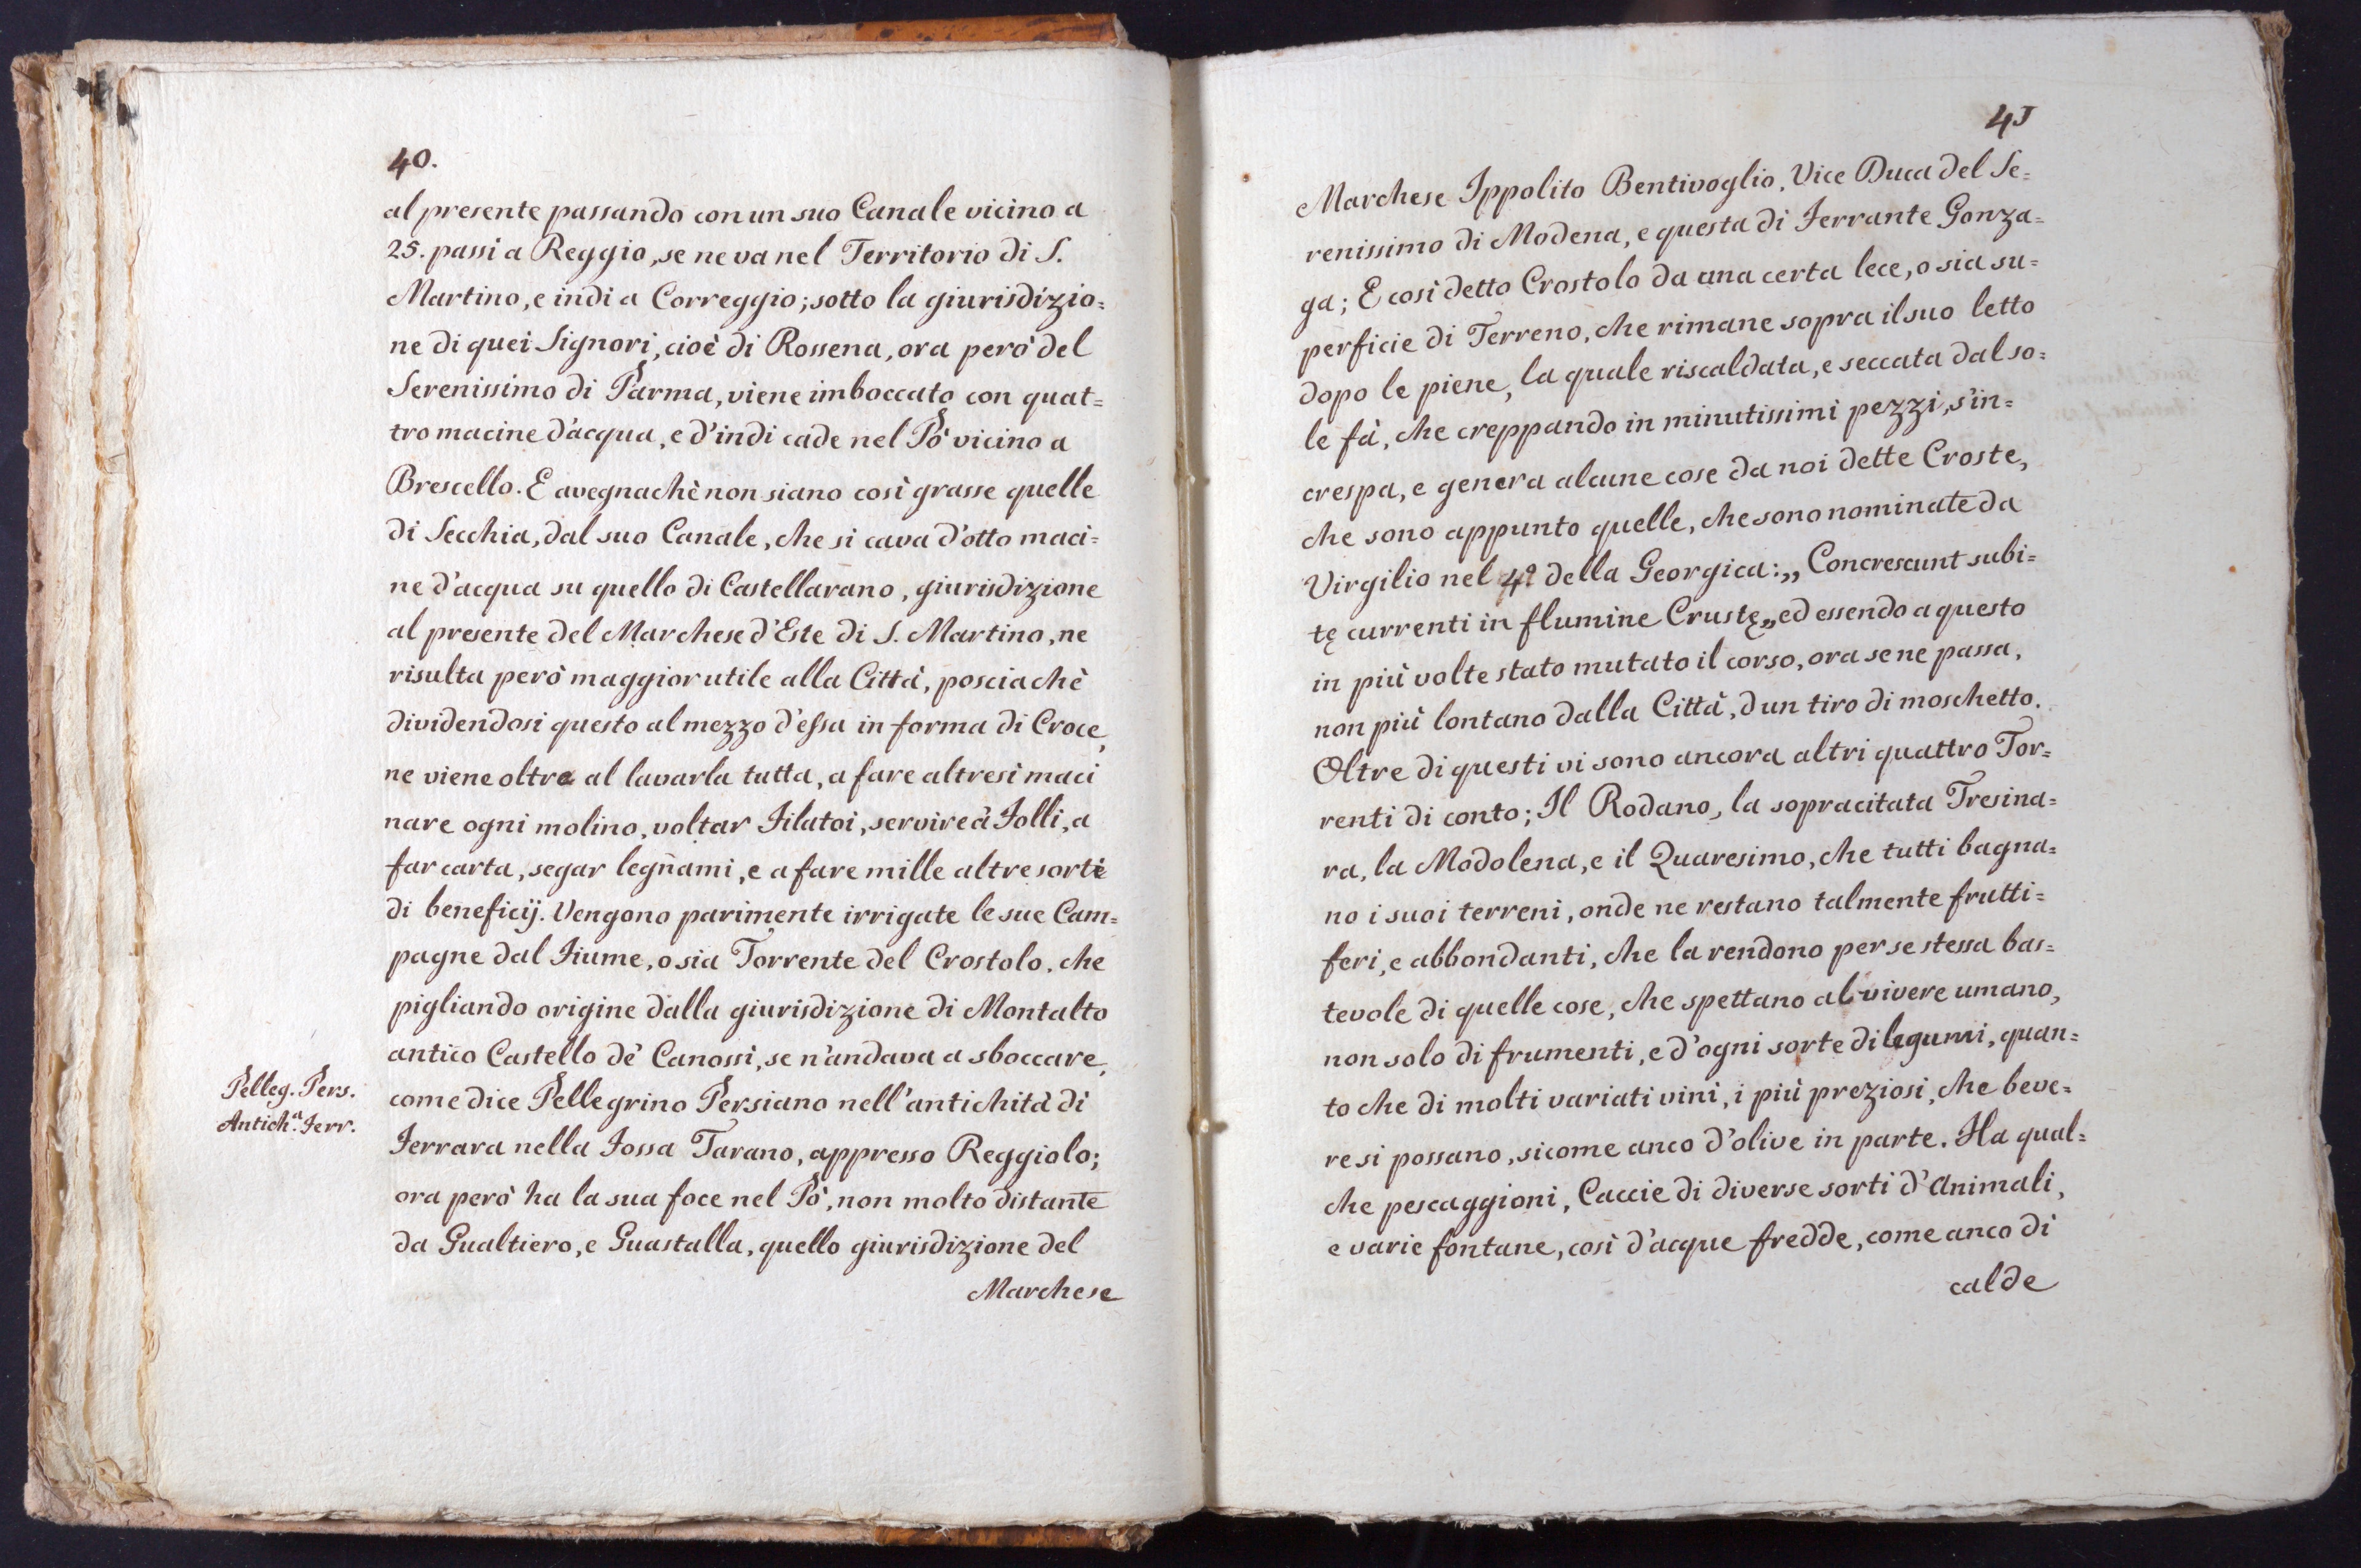 40.
al presente passando con un suo Canale vicino a
25. passi a Reggio, se ne va nel Territorio di S.
Martino, e indi a Correggio; sotto la giurisdizio=
ne di quei Signori, cioè di Rossena, ora però del
Serenissimo di Parma, viene imboccato con quat=
tro macine d'acqua, e d'indi cade nel Pò vicino a
Brescello. E avegnachè non siano così grasse quelle
di Secchia, dal suo Canale, che si cava d'otto maci=
ne d'acqua su quello di Castellarano, giurisdizione
al presente del Marchese d'Este di S. Martino, ne
risulta però maggior utile alla Città, posciachè
dividendosi questo al mezzo d'essa in forma di Croce,
ne viene oltre al lavarla tutta, a fare altresì maci
nare ogni molino, voltar Filatoi, servire à Folli, a
far carta, segar legñami, e a fare mille altre sorte
di beneficij. Vengono parimente irrigate le sue Cam=
pagne dal Fiume, o sia Torrente del Crostolo, che
pigliando origine dalla giurisdizione di Montalto
antico Castello dè Canossi, se n'andava a sboccare,
come dice Pellegrino Persiano nell'antichità di
Ferrara nella Fossa Tarano, appresso Reggiolo;
ora però ha la sua foce nel Pò, non molto distante
da Gualtiero, e Guastalla, quello giurisdizione del
Marchese
Pelleg. Pers.
Antich.ª Ferr.
41
Marchese Ippolito Bentivoglio, Vice Duca del Se=
renissimo di Modena, e questa di Ferrante Gonza=
ga; E così detto Crostolo da una certa lece, o sia su=
perficie di Terreno, che rimane sopra il suo letto
dopo le piene, la quale riscaldata, e seccata dal so=
le fà, che creppando in minutissimi pezzi, s'in=
crespa, e genera alcune cose da noi dette Croste,
che sono appunto quelle, che sono nominate da
Virgilio nel 4º della Georgica: „ Concrescunt subi=
tę currenti in flumine Crustę „ ed essendo a questo
in più volte stato mutato il corso, ora se ne passa,
non più lontano dalla Città, d'un tiro di moschetto.
Oltre di questi vi sono ancora altri quattro Tor=
renti di conto; Il Rodano, la sopracitata Tresina=
ra, la Modolena, e il Quaresimo, che tutti bagna=
no i suoi terreni, onde ne restano talmente frutti=
feri, e abbondanti, che la rendono per se stessa bas=
tevole di quelle cose, che spettano al vivere umano,
non solo di frumenti, e d'ogni sorte di legumi, quan=
to che di molti variati vini, i più preziosi, che beve=
re si possano, sicome anco d'olive in parte. Ha qual=
che pescaggioni, Caccie di diverse sorti d'Animali,
e varie fontane, così d'acque fredde, come anco di
calde